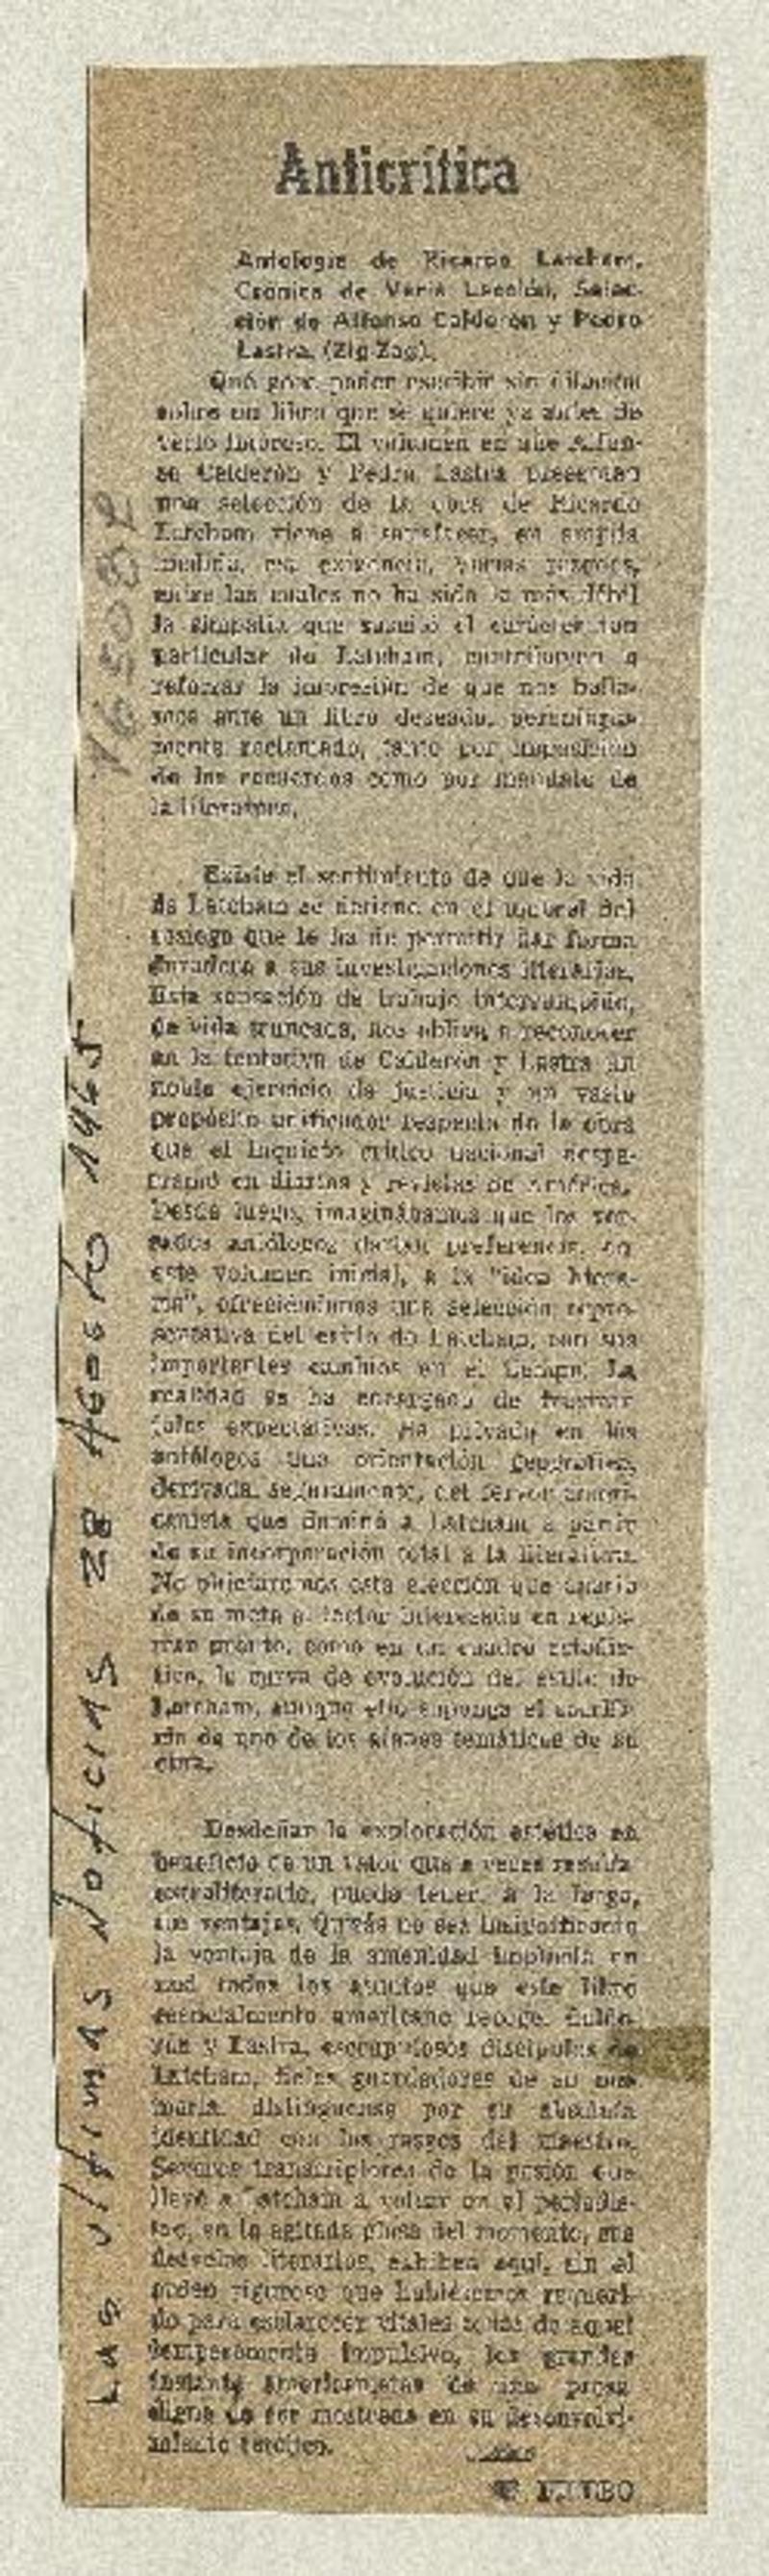 Anticrítica
Antología de Ricardo Latcham.
Crónica de Varia Lección. Selec-
ción de Alfonso Calderón y Pedro
Lastra. (Zig-Zag).
Qué gozo poder escribir sin
sobre un libro que se quiere ya antes de
verlo impreso. El volumen en que Alfon-
so Calderón y Pedro Lastra presentan
una selección de la obra de Ricardo
Latcham viene a satisfacer, en amplia
medida, esa exigencia. Varias razones,
entre las cuales no ha sido la más débil
la simpatía que suscitó el carácter tan
particular de Latcham, contribuyen a
reforzar la impresión de que nos halla-
mos ante un libro deseado,
mente reclamado, tanto por imposición
de los recuerdos como por mandato de
la literatura.
Existe el sentimiento de que la vida
de Latcham se detiene en el umbral del
sosiego que le ha de permitir dar forma
duradera a sus investigaciones literarias.
Esta sensación de trabajo interrumpido,
de vida truncada, nos obliga a reconocer
en la tentativa de Calderón y Lastra un
noble ejercicio de justicia y un vasto
propósito unificador respecto de la obra
que el inquieto crítico nacional despa-
rramó en diarios y revistas de América.
Desde luego, imaginábamos que los
antólogos darían preferencia, en
este volumen inicial, a la
ofreciéndonos una selección repre-
sentativa del estilo de Latcham, con sus
importantes cambios en el tiempo. La
realidad se ha encargado de frustrar
tales expectativas. Ha privado en los
antólogos una orientación geográfica,
derivada, seguramente, del fervor ameri-
canista que dominó a Latcham a partir
de su incorporación total a la literatura.
No objetaremos esta elección que aparta
de su meta al lector interesado en regis-
trar pronto, como en un cuadro
la curva de evolución del estilo de
Latcham, aunque ello suponga el sacrifi-
cio de uno de los planes temáticos de su
obra.
Desdeñar la exploración estética en
beneficio de un valor que a veces resulta
extraliterario, puede tener, a la larga,
sus ventajas. Quizás no sea insignificante
la ventaja de la amenidad implícita en
casi todos los asuntos que este libro
esencialmente americano recoge. Calde-
rón y Lastra, escrupulosos discípulos de
Latcham, fieles guardadores de su me-
moria, distínguense por su absoluta
identidad con los rasgos del maestro.
Severos transcriptores de la pasión que
llevó a Latcham a volcar en el periodis-
mo, en la agitada plaza del momento, sus
desvelos literarios, exhiben aquí, sin el
orden riguroso que hubiésemos requeri-
do para esclarecer vitales zonas de aquel
temperamento impulsivo, los grandes
instants americanistas de una prosa
digna de ser mostrada en su desenvolvi-
miento
Las últimas Noticias 28 Agosto 1965